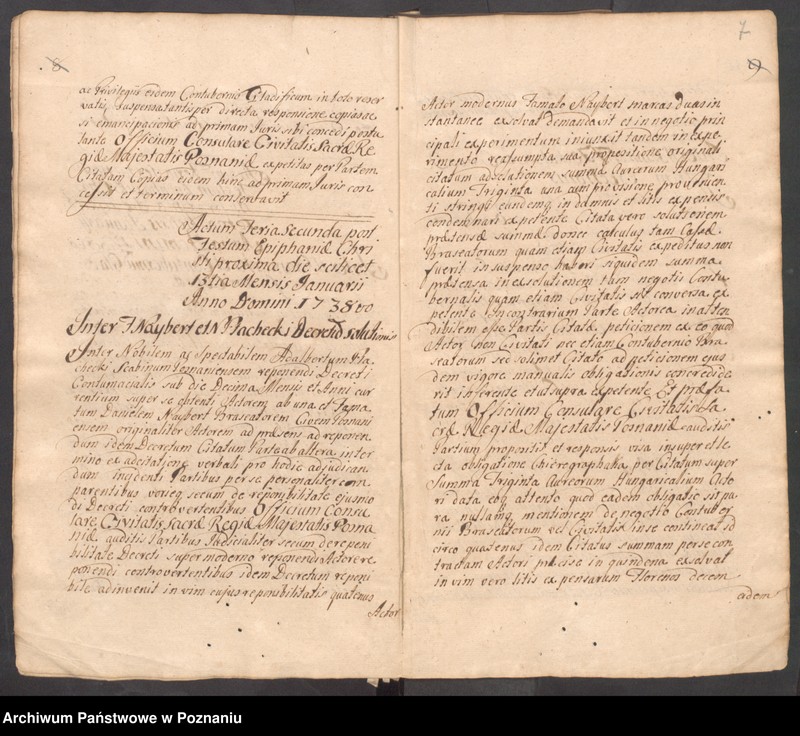 8
ac Privilegiis eidem Contubernio Citadificum in toto reser
vatis, suspensa tantisper directa responsione copias ac
si emancipationes ad primam Juris sibi concedi postu
lante Officium Consulare Civitatis Sacræ Re
giæ Majestatis Posnaniæ expetitas per Partem
Citatam Copias eidem hinc ad primam Juris con
cessit et terminum conservavit
Actum Feria Secunda post
Festum Epiphaniæ Chri
sti proxima die scilicet
13tia Mensis Januarii
Anno Domini 1738vo
Inter F. Naybert et N Płachecki Decretū solutionis
Inter Nobilem ac Spectabilem Adalbertum Pła
checki Scabinum Posnaniensem reponendi Decreti
Contumacialis sub die Decima Mensis et Anni cur
rentium super se obtenti Actorem ab una et Fama
tum Danielem Naybert Braseatorem Civem Posnani
ensem originaliter Actorem ad præsens ad reponen
dum idem Decretum Citatum Parte ab altera inter
mino ex adcitatione verbali pro hodie adjudican
dum incidenti Partibus per se personaliter com
parentibus voreq secum de reponibilitate ejusmo
di Decreti controvertentibus Officium Consu
lare Civitatis Sacræ Regiæ Majestatis Posna
niæ auditis Partibus Judicialiter secum de reponi
bilitate Decreti super moderno reponendi Actore re
ponendi controvertentibus idem Decretum reponi
bile adinvenit in vim cujus reponibilitatis quatenus
Actor
7
9
Actor modernus Famato Naybert marcas duas in
stantanee exsolvat demandavit et in negotio prin
cipali experimentum injunxit tandem in expe
rimento reassumpta sua propositione originali
citatum ad solationem summæ Aureorum Hungari
calium Triginta una cum provisione provenien
ti stringi eundemq in damnis et litis expensis
condemnari expetente Citata vero solutionem
prætensæ summæ donec calculus tam Cassæ
Braseatorum quam etiam Civitatis expeditus non
fuerit in suspenso haberi siquidem summa
prætensa in exsolutionem tam negotii Contu
bernalis quam etiam Civitatis sit conversa ex
petente In contrarium Parte Actorea inatten
dibilem esse Partis Citatæ petitionem ex eo quod
Actor non Civitati nec etiam Contubernio Bra
seatorum sed solimet Citato ad petitionem ejus
dem vigore manualis obligationis concredide
rit inferente et ut supra expetente Et præfa
tum Officium Consulare Civitatis Sa
cræ Regiæ Majestatis Posnaniæ auditis
Partium propositis et responsis visa insuper et le
cta obligatione Chirographaria per Citatum super
Summa Triginta Aureorum Hungaricalium Acto
ri data eoq attento quod eadem obligatio sit pu
ra nullamq mentionem de negotio Contuber
nii Braseatorum vel Civitatis in se contineat id
circo quatenus idem Citatus summam per se con
tractam Actori præcise in quindena exsolvat
in vim vero litis expensarum Florenos decem
eidem
Archiwum Państwowe w Poznaniu